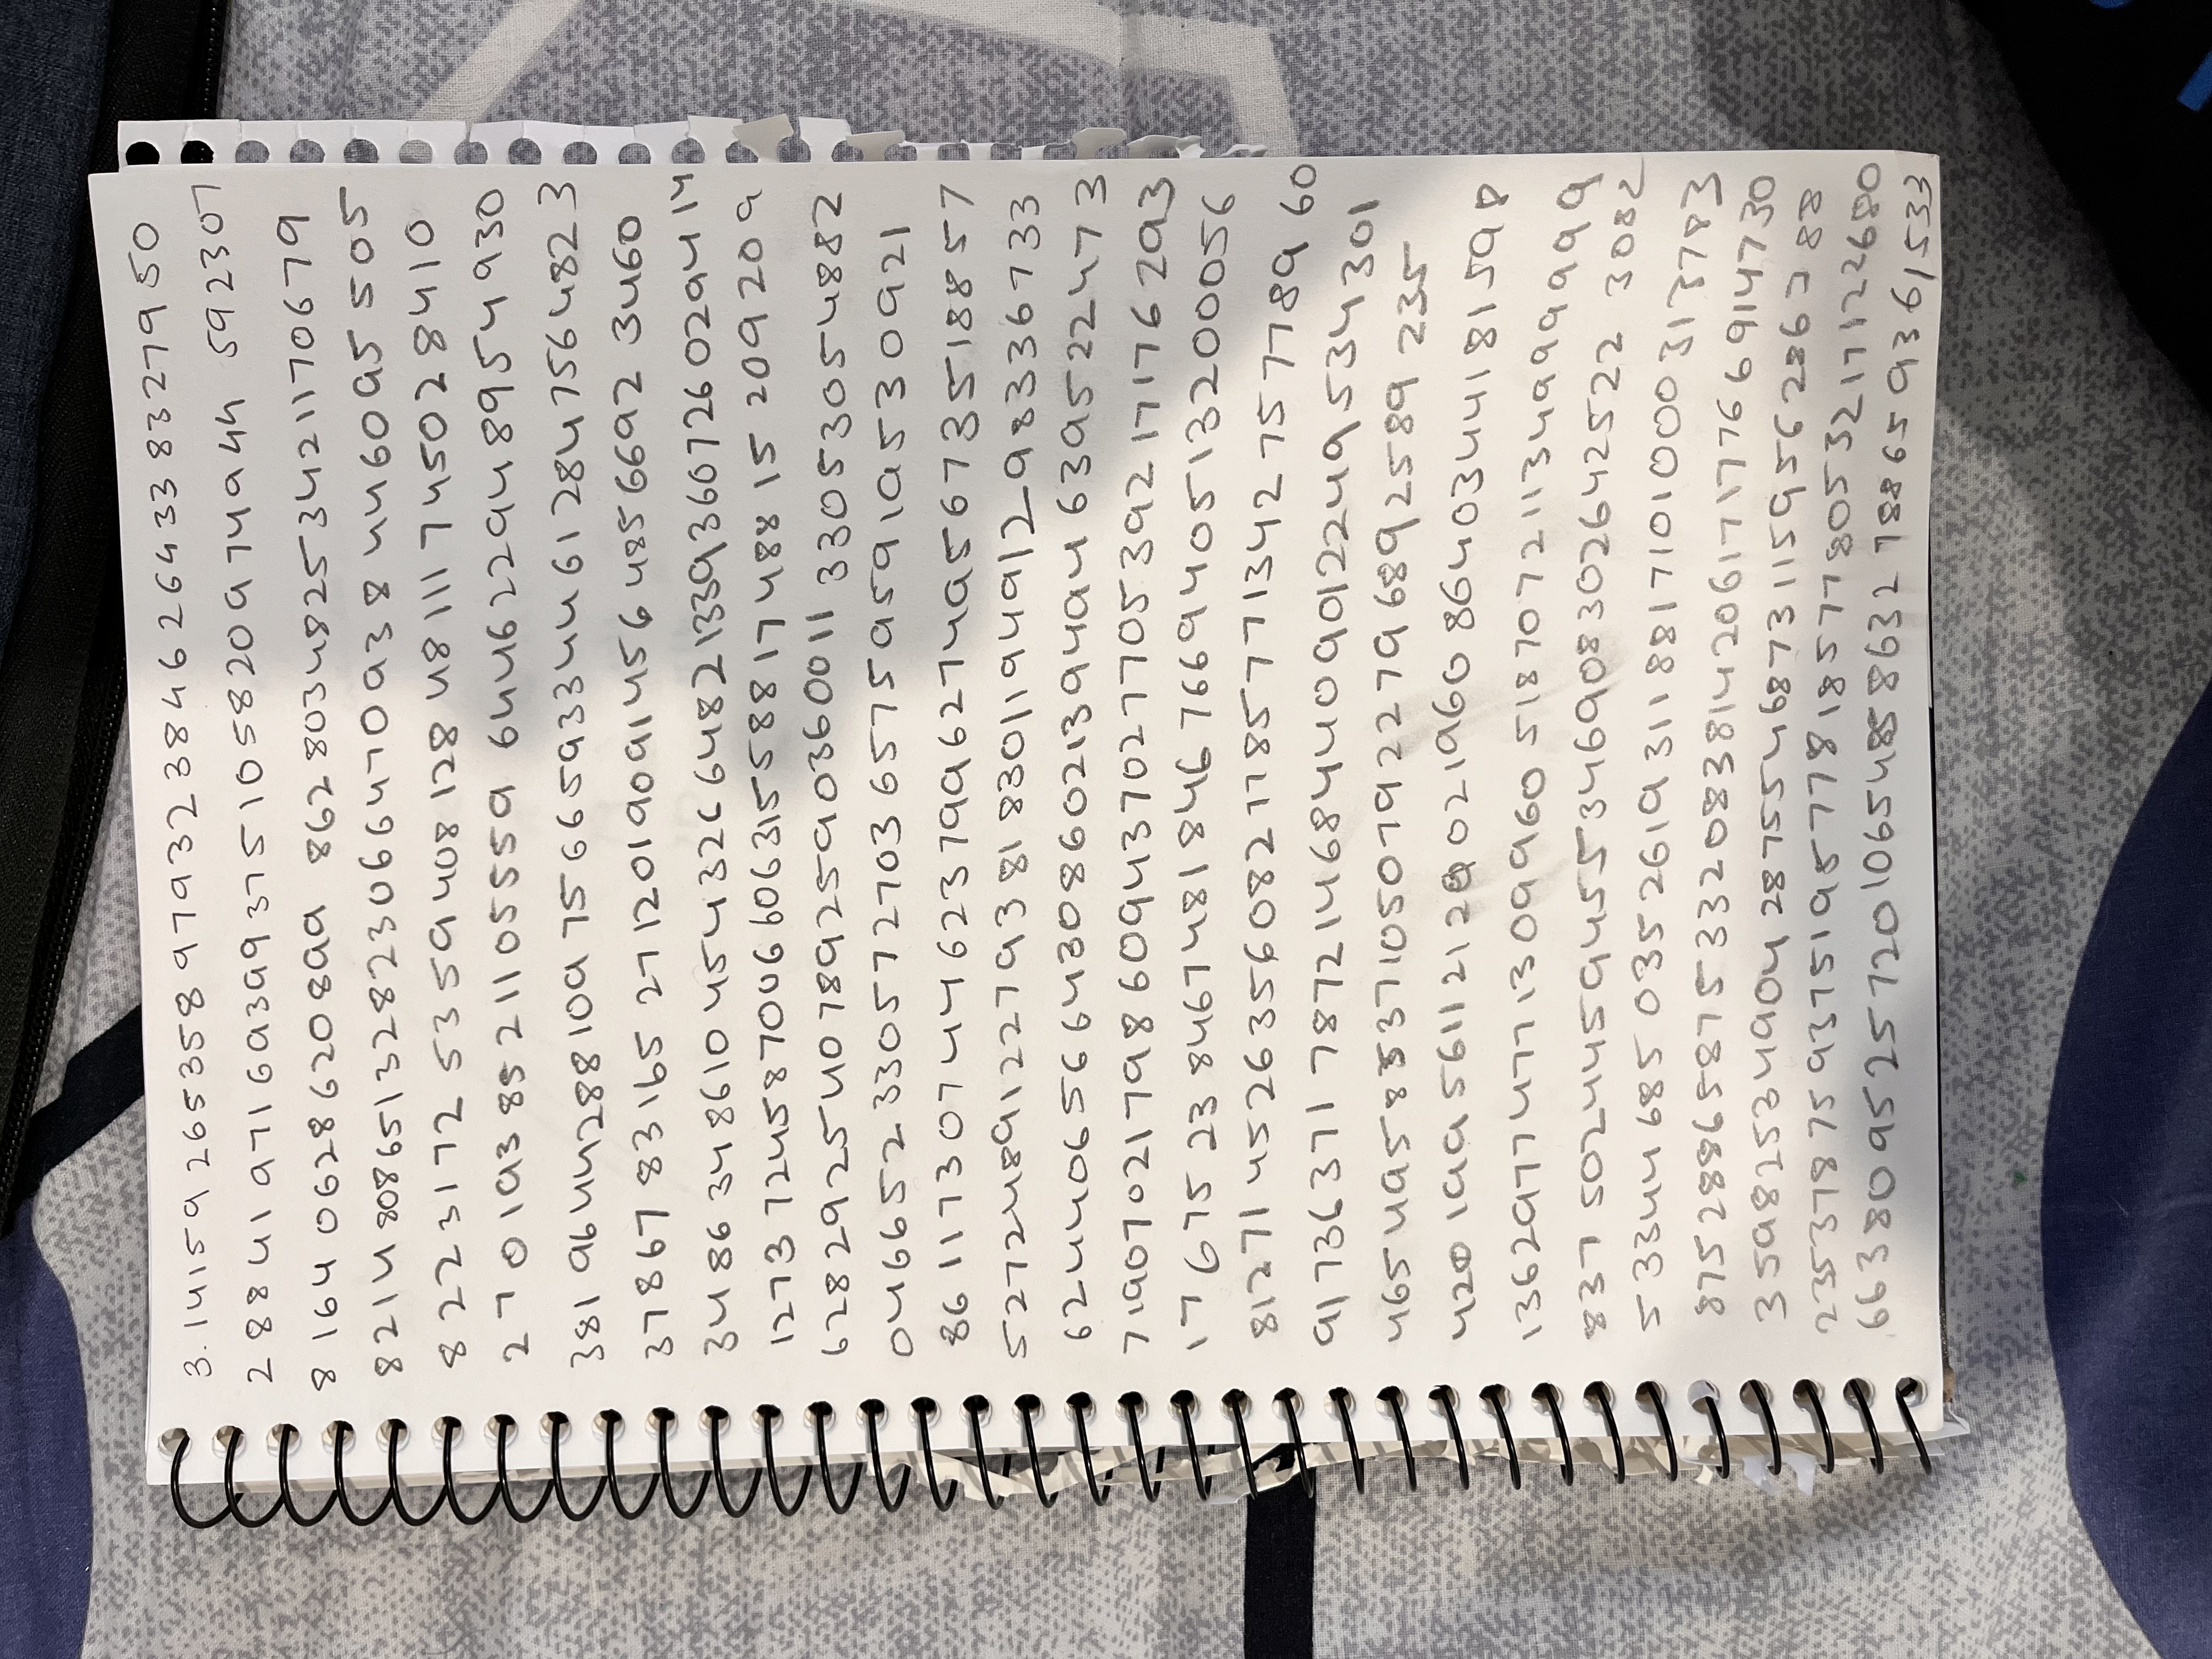 3.14159 265358 97932384626433 8327950
2 8841 971693993751058209 74944 592307
8 164 0628620899 862 8034825342 1170679
8214 808651328230664709 38 446095 505
8 223172 5359408 128 48111 745028410
270193 85 21105559 6446229489549 30
381 964428810975665933446128475648 23
37867 83165 27120190 91456 4856692 3460
3486 348610 454326 6482133936072602494 14
1273 724587006 606315588 17488 15 209209
628292540789259036001 1 33053054882
046652 3305727036575959 19530921
86 11730744623799627495673518857
52724891227938183011949129833 6733
6244065664308602139494 639522473
719070217986094370277053921717 6293
17 675 23 8467481846 76694051 3200056
8127145263560827785771342 757789 60
91736371 787214684409012249 534301
465 4958537105079227968925 89 235
420 199 56112129021960 8640344181598
136297747713099605187072113499 9999
837 502445945534690830264 2522 3082
5 3344 685 035261931188171010003 13783
8752886587533208381420617177669 14730
35982534904 287554687311595628638 88
235378759375195778185778053217122680
663809525720106548586327886593 61533